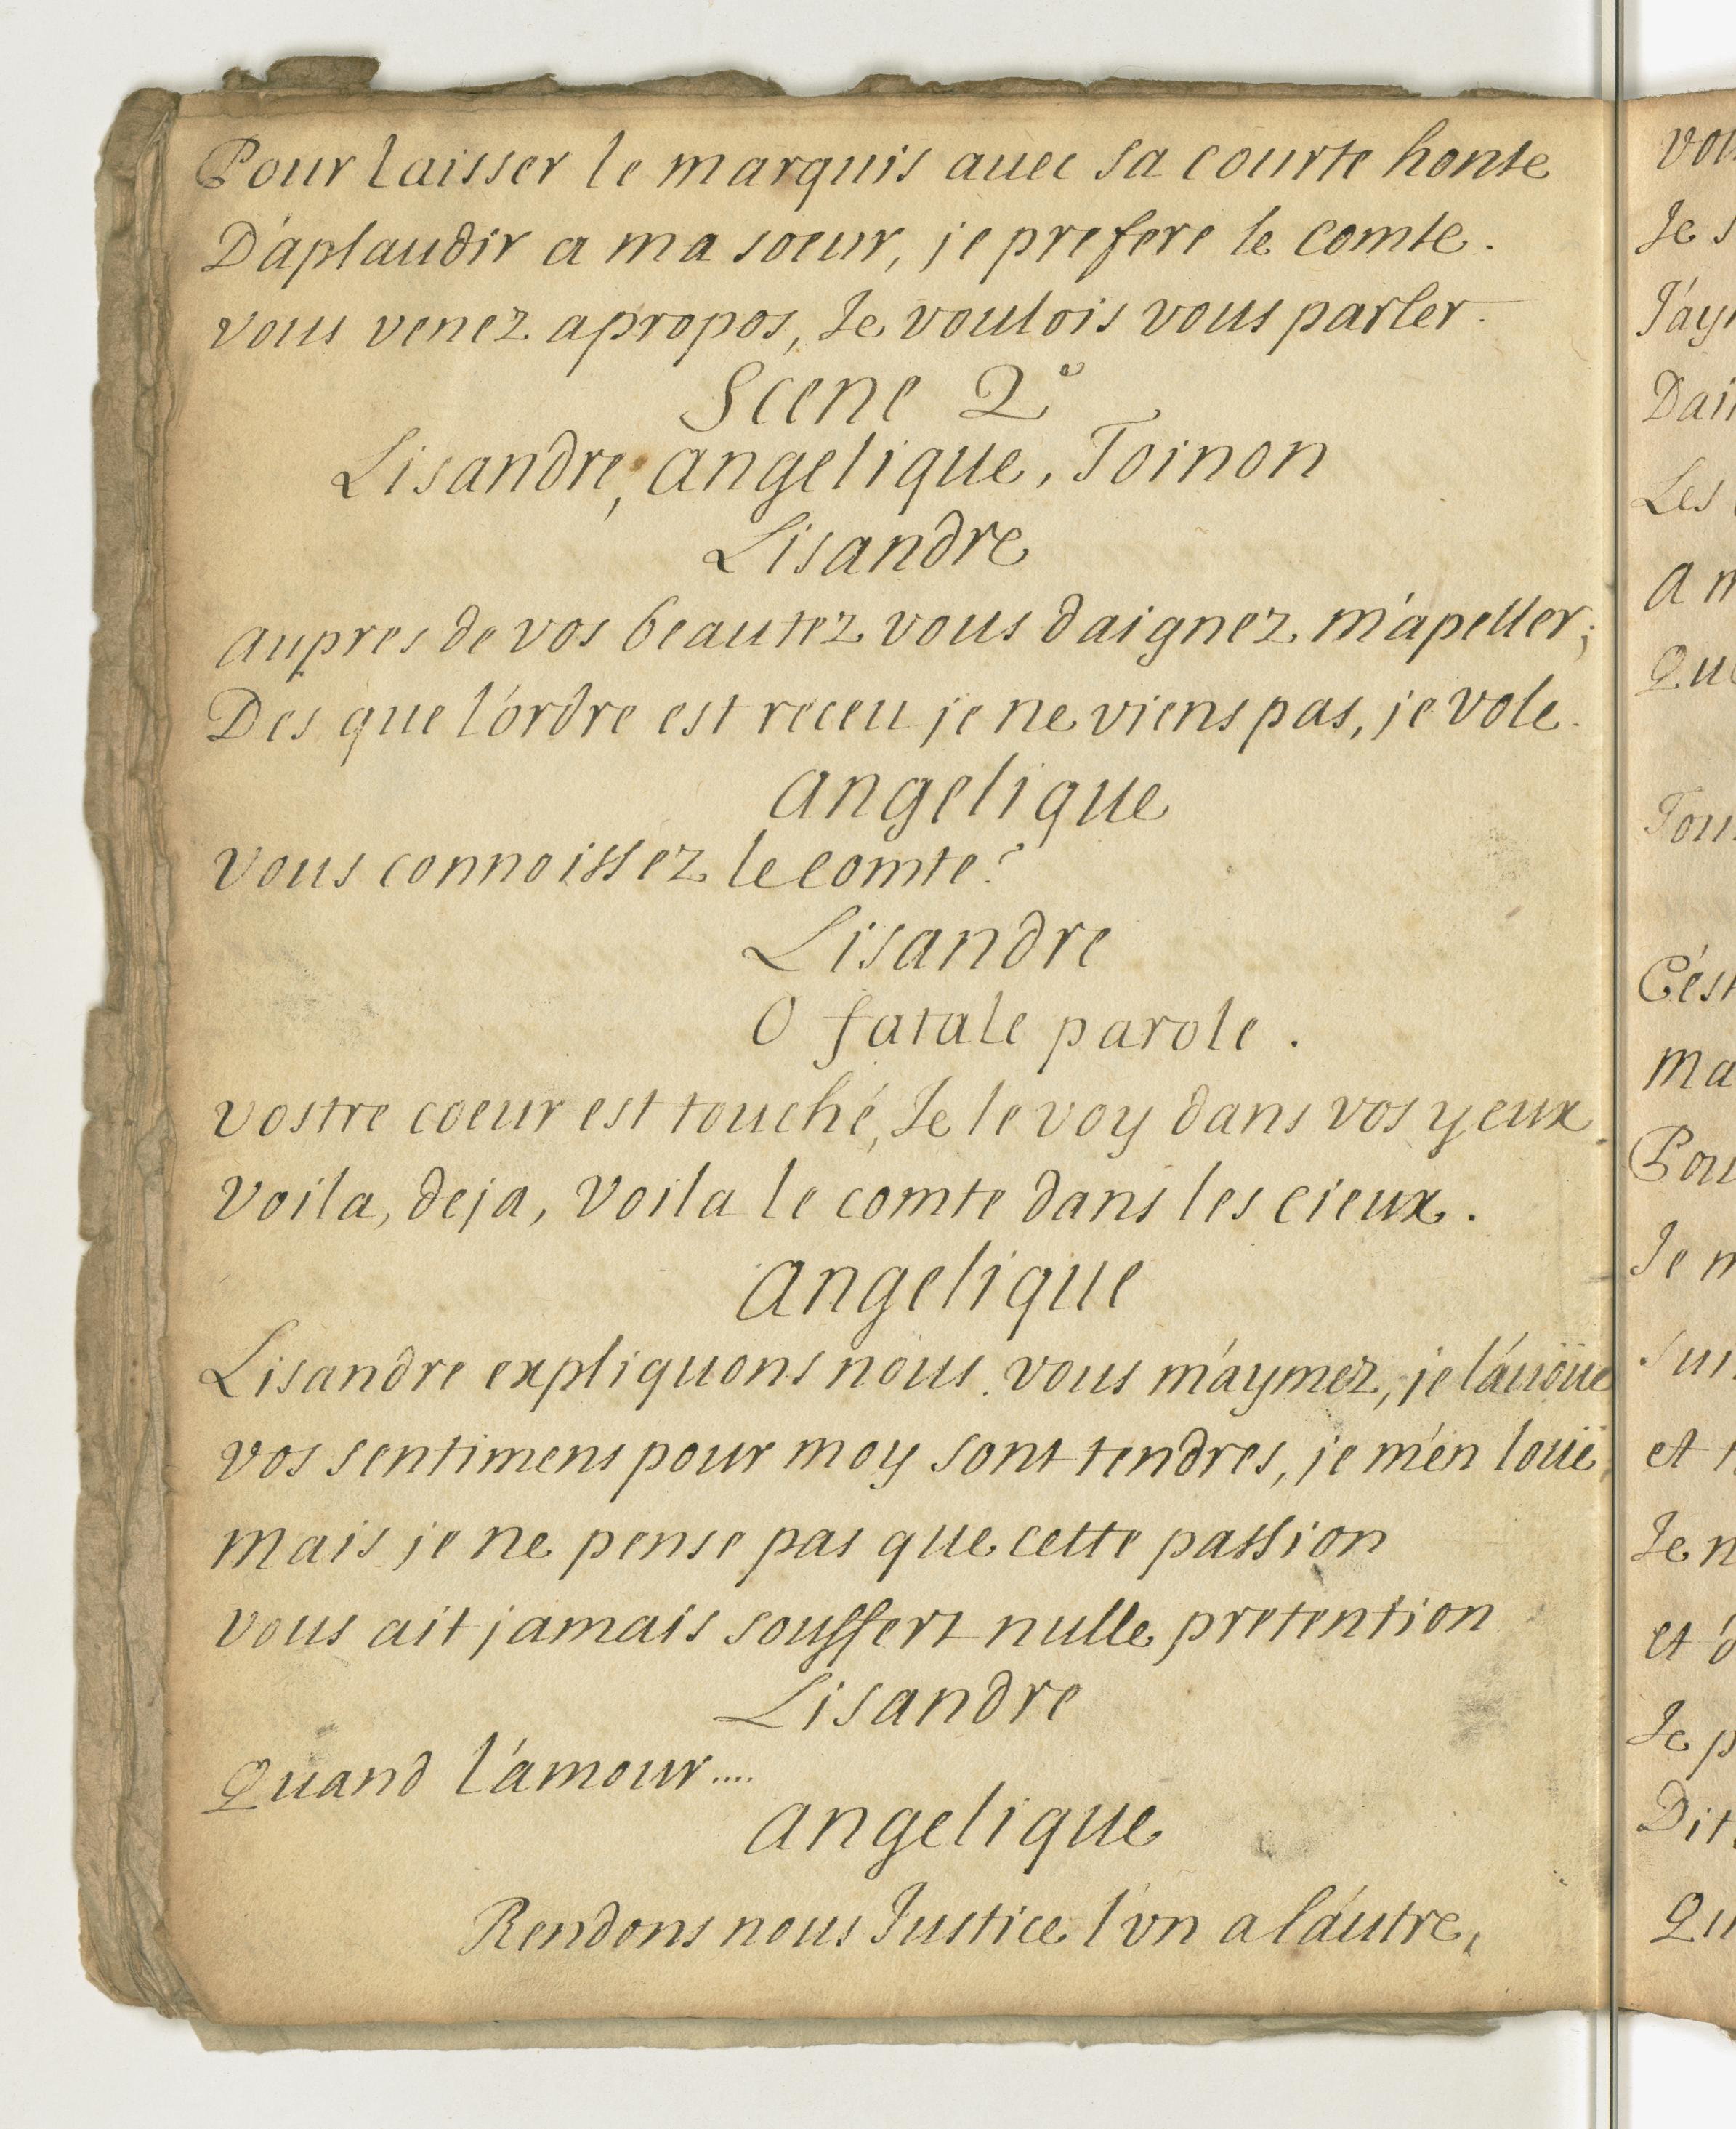 Pour laisser le marquis auec sa courte honte
D'aplaudir a ma soeur, je prefere le comte.
vous venez apropos, Je voulois vous parler.
Scene 2e
Lisandre, angelique, Toinon
Lisandre
aupres de vos beautez vous daignez m'apeller;
Des que l'ordre est receu je ne viens pas, je vole.
angelique
vous connoissez le comte?
Lisandre
O fatale parole.
vostre coeur est touché, Je le voy dans vos yeux.
voila, deja, voila le comte dans les cieux.
angelique
Lisandre expliquons nous. vous m'aymez, je l'auoüe
vos sentimens pour moy sont tendres, je m'en loüe
mais je ne pense pas que cette passion
vous ait jamais souffert nulle pretention
Lisandre
Quand l'amour....
angelique
Rendons nous Justice l'vn a l'autre,